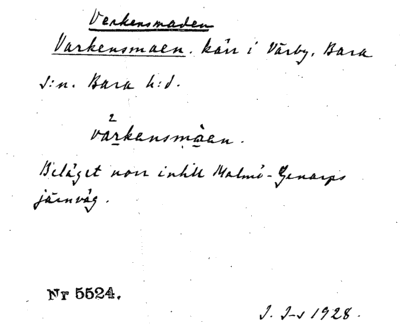 Verkensmaden
Varkensmaen. kärr i Värby, Bara
s:n. Bara h:d.
2
vạrkensmåen.
Beläget norr intill Malmö-Genarps
järnväg.
Nr 5524.
J. J-s 1928.